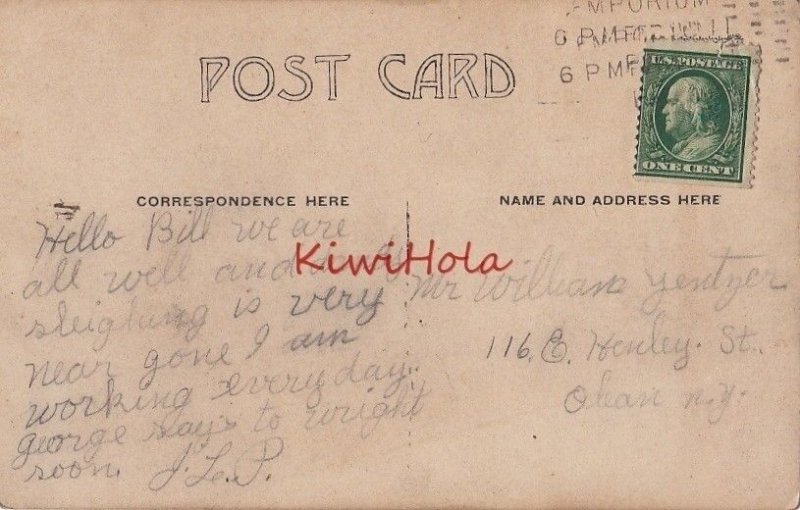 EMPORIUM
6 PM
6 PM
POST CARD
U.S. POSTAGE
ONE CENT
CORRESPONDENCE HERE
NAME AND ADDRESS HERE
Hello Bill we are
all well and
sleighing is very
near gone I am
working every day.
george says to wright
soon. J.L.P.
KiwiHola
Mr William Yentzer
116, E. Henley. St.
Olean n.y.